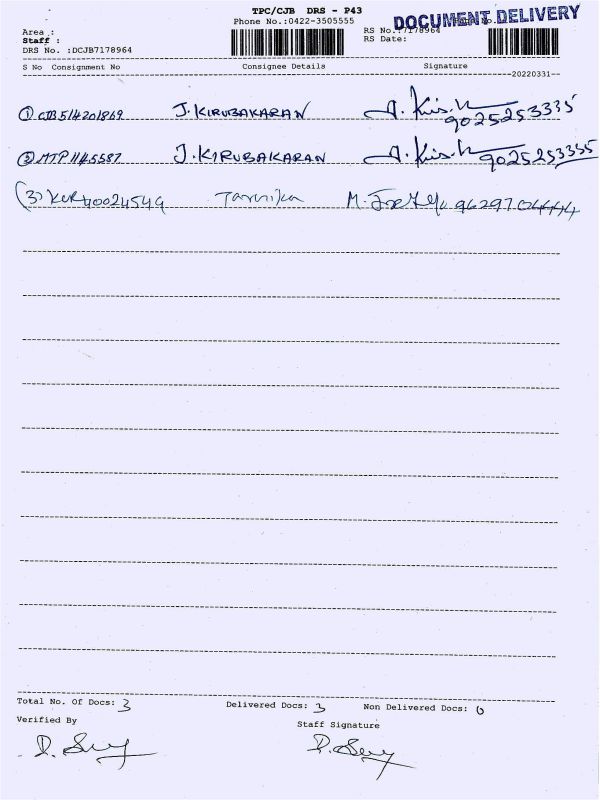 TPC/CJB DRS - P43
Phone No.:0422-3505555
DOCUMENT DELIVERY
Area :
Staff :
DRS No. :DCJB7178964
RS No.:7178964
RS Date:
S No Consignment No Consignee Details Signature
20220331
① CJB514201869 J.KIRUBAKARAN 9025253335
② MTP1145587 J.KIRUBAKARAN 9025253335
(3) KUR40024549 Tarnika
Total No. Of Docs: 3 Delivered Docs: 3 Non Delivered Docs: 0
Verified By Staff Signature